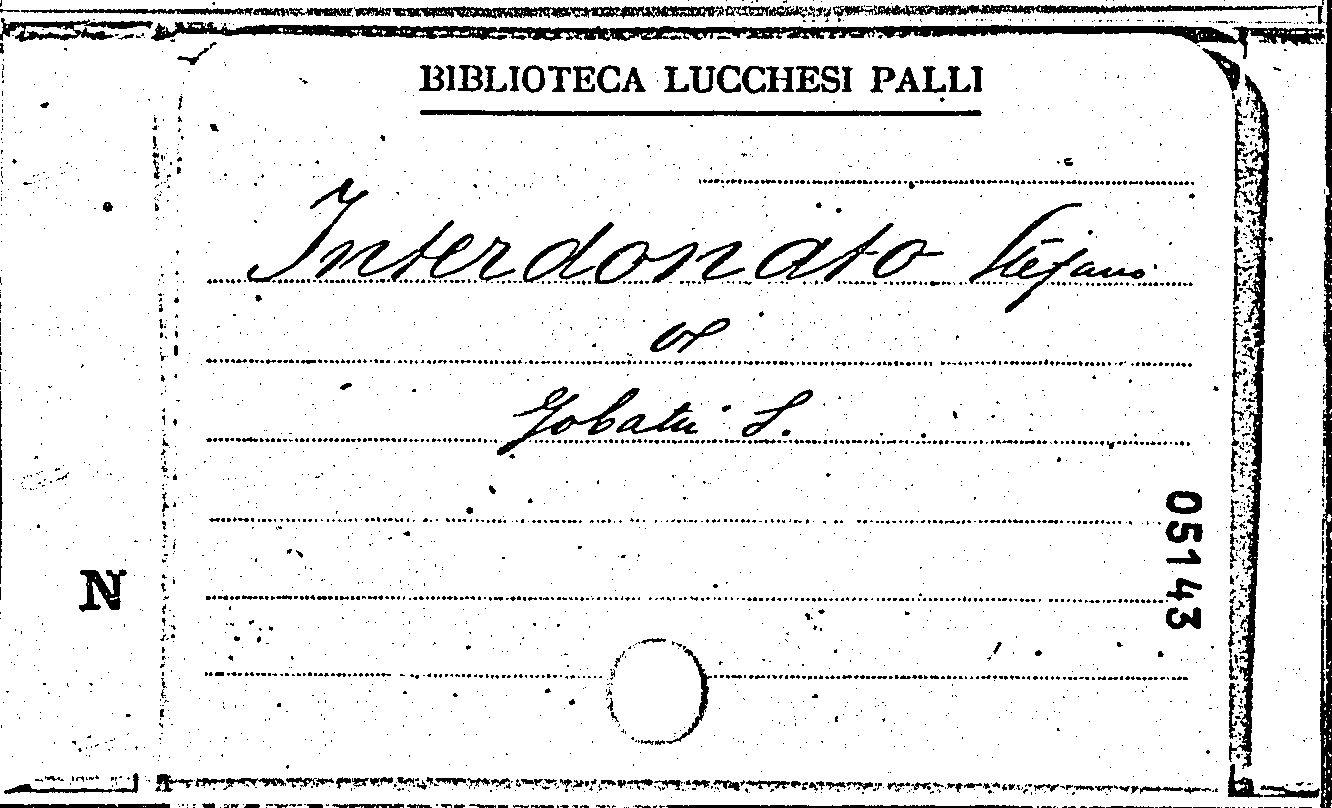 BIBLIOTECA LUCCHESI PALLI
Interdonato Stefano
v
Gobatti S.
05143
N